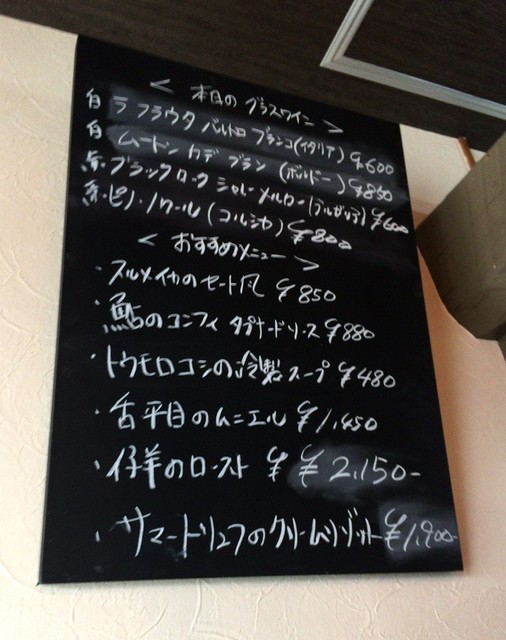 < 本日の グラスワイン >
白 ラ フラウタ バルトロ ブランコ(イタリア) ¥600
白 ムートン カデ ブラン (ボルドー) ¥850
赤 ブラックロック シャレー メルロー ¥600
赤 ピノ・ノワール (コルシカ) ¥800
< おすすめメニュー >
・スルメイカのセート風 ¥850
・鮎のコンフィ タプナードソース ¥880
・トウモロコシの冷製スープ ¥480
・舌平目のムニエル ¥1,450
・仔羊のロースト ¥ ¥2,150-
・サマートリュフのクリームリゾット ¥1,900-